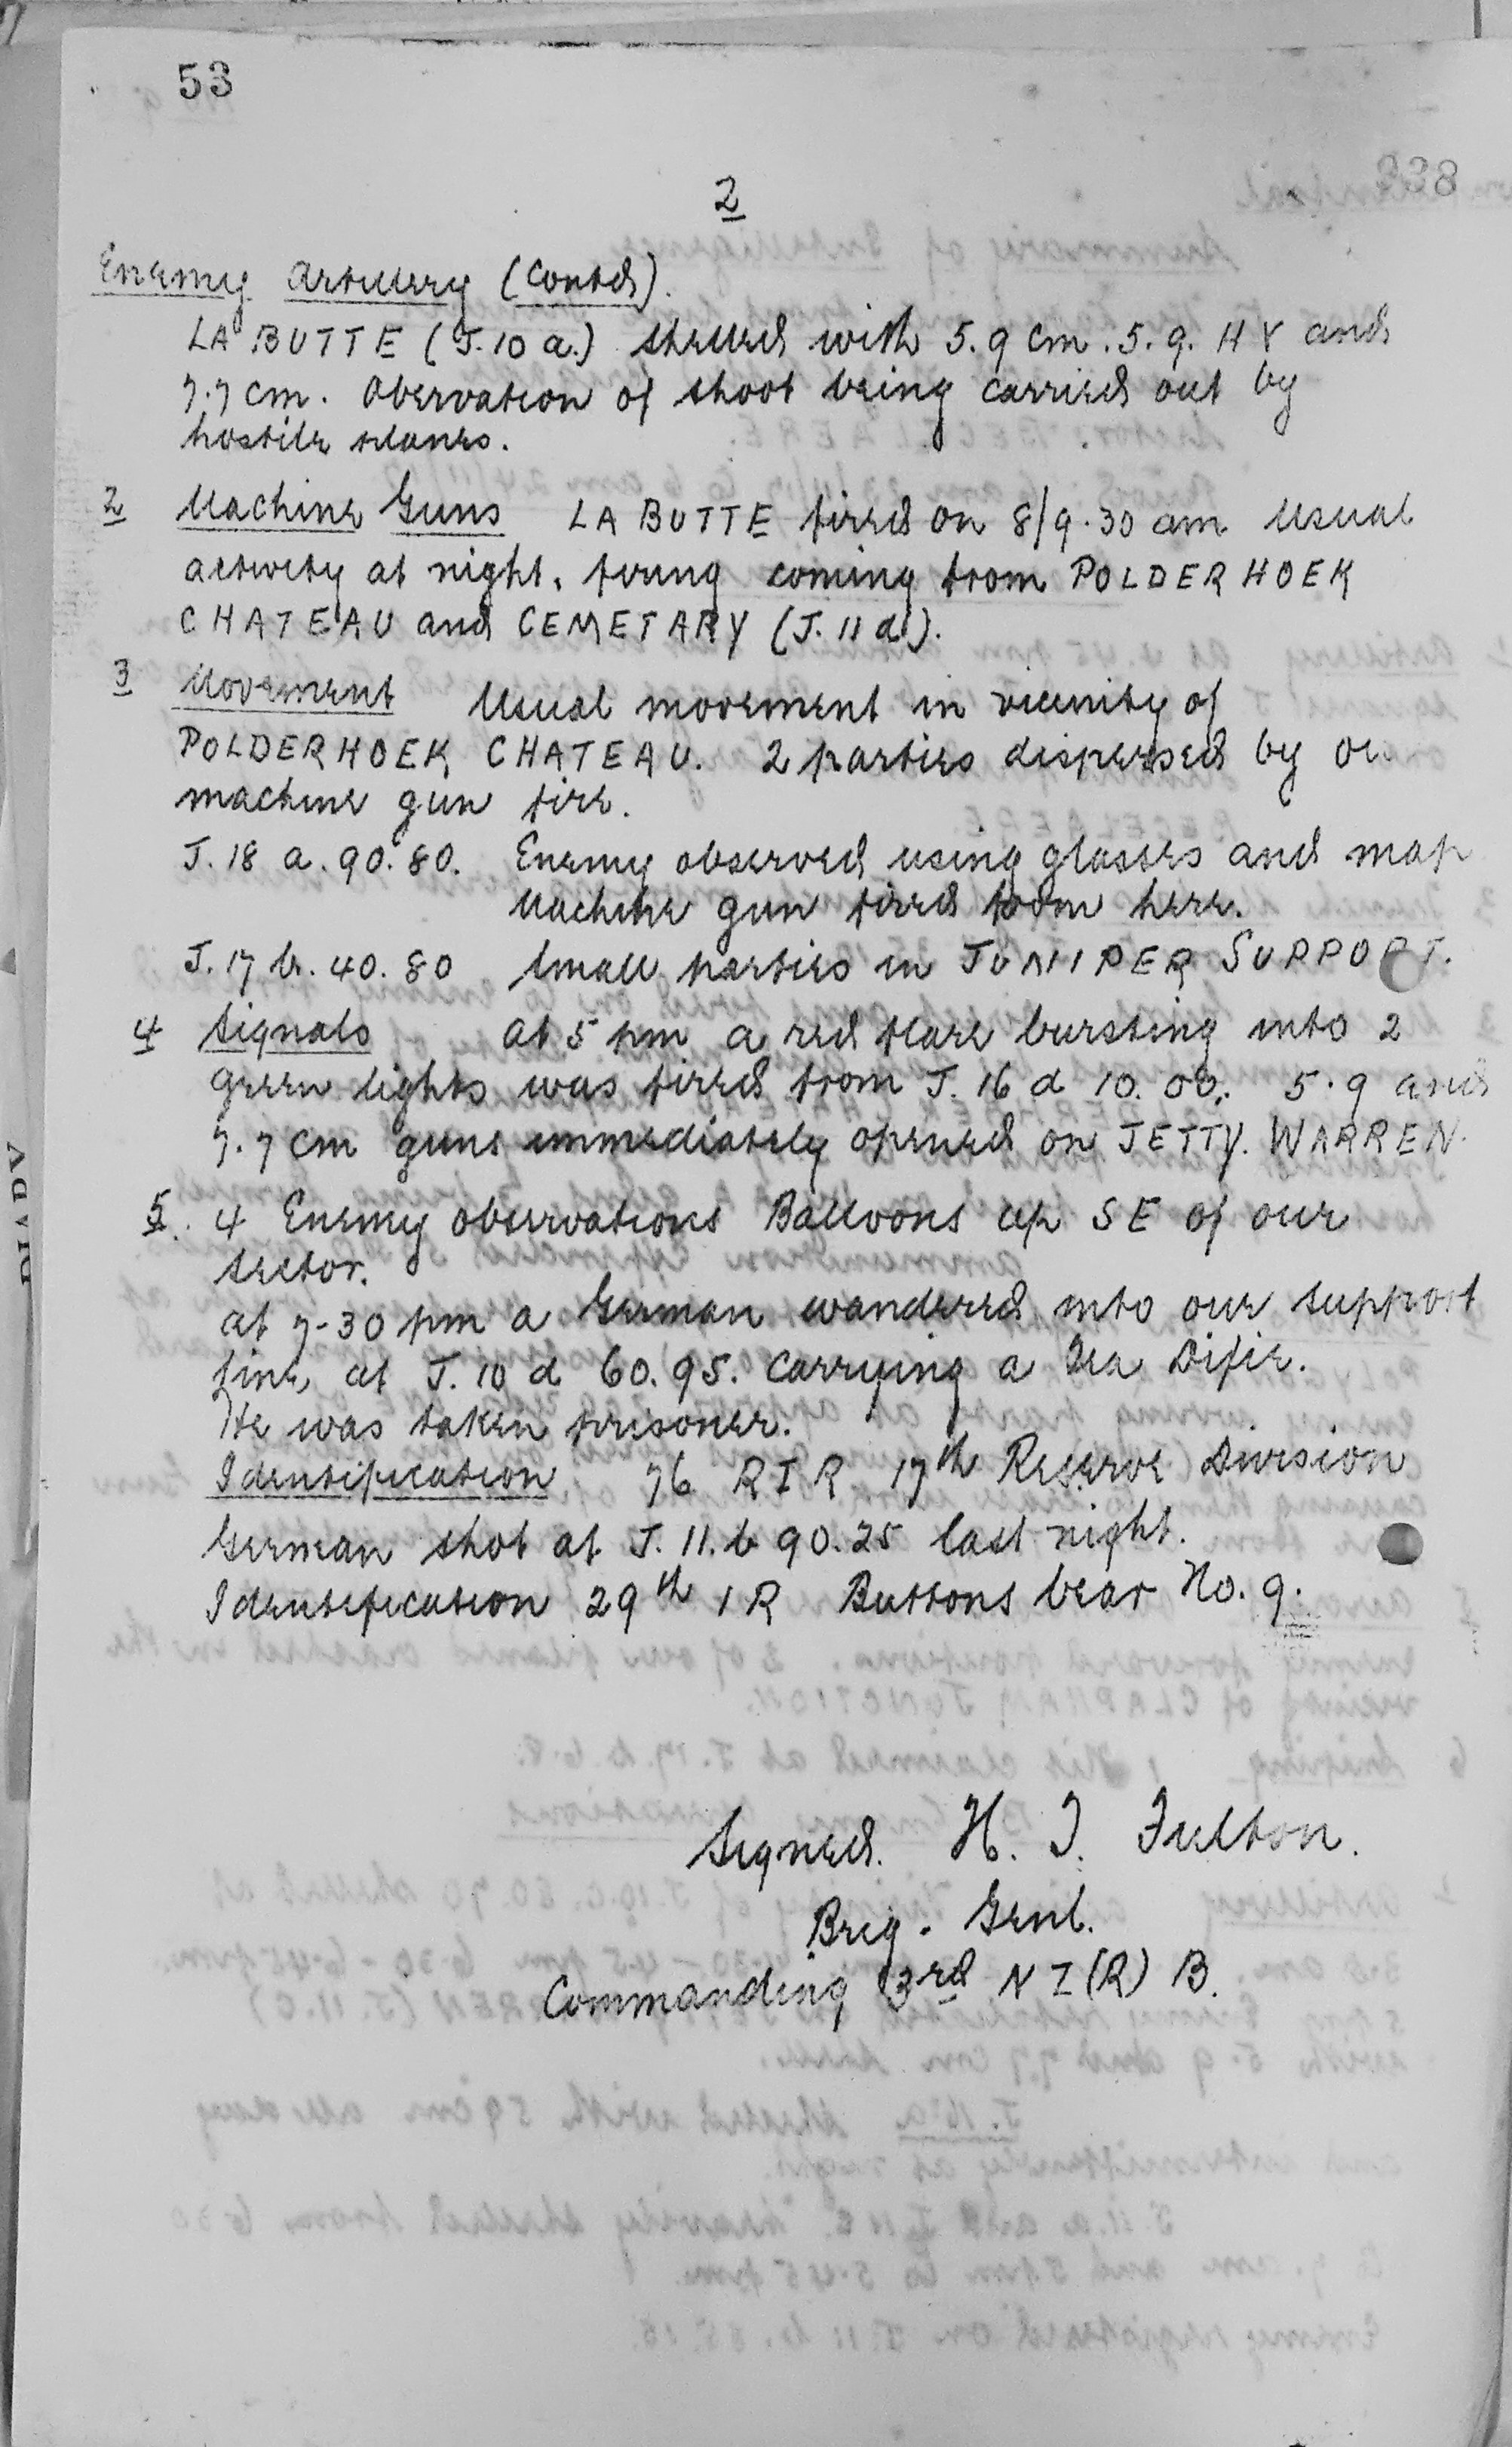 53
2
Enemy Artillery (Contd).
LA BUTTE (J.10 a.) shelled with 5.9 cm. 5.9. HV and
7.7 cm. Obervation of shoot being carried out by
hostile planes.
2 Machine Guns LA BUTTE fired on 8/9.30 am Usual
activity at night, firing coming from POLDERHOEK
CHATEAU and CEMETARY (J. 11 d).
3 Movement Usual movement in vicinity of
POLDERHOEK CHATEAU. 2 parties dispersed by
machine gun fire.
J. 18 a. 90. 80. Enemy observed using glasses and map
Machine gun fired from here.
J. 17 b. 40. 80 Small parties in JUNIPER SUPPORT.
4 Signals At 5 pm a red flare bursting into 2
green lights was fired from J. 16 d 10. 00. 5.9 and
7.7 cm guns immediately opened on JETTY. WARREN.
5. 4 Enemy observations Balloons up SE of our
sector.
At 7-30 pm a German wandered into our support
line, at J. 10 d 60. 95. carrying a
He was taken prisoner.
Identification 76 R I R 17th Reserve Division
German shot at J. 11. b 90. 25 last night.
Identification 29th I R Buttons bear No. 9.
Signed. H. T. Fulton.
Brig. Genl.
Commanding 3rd N Z (R) B.